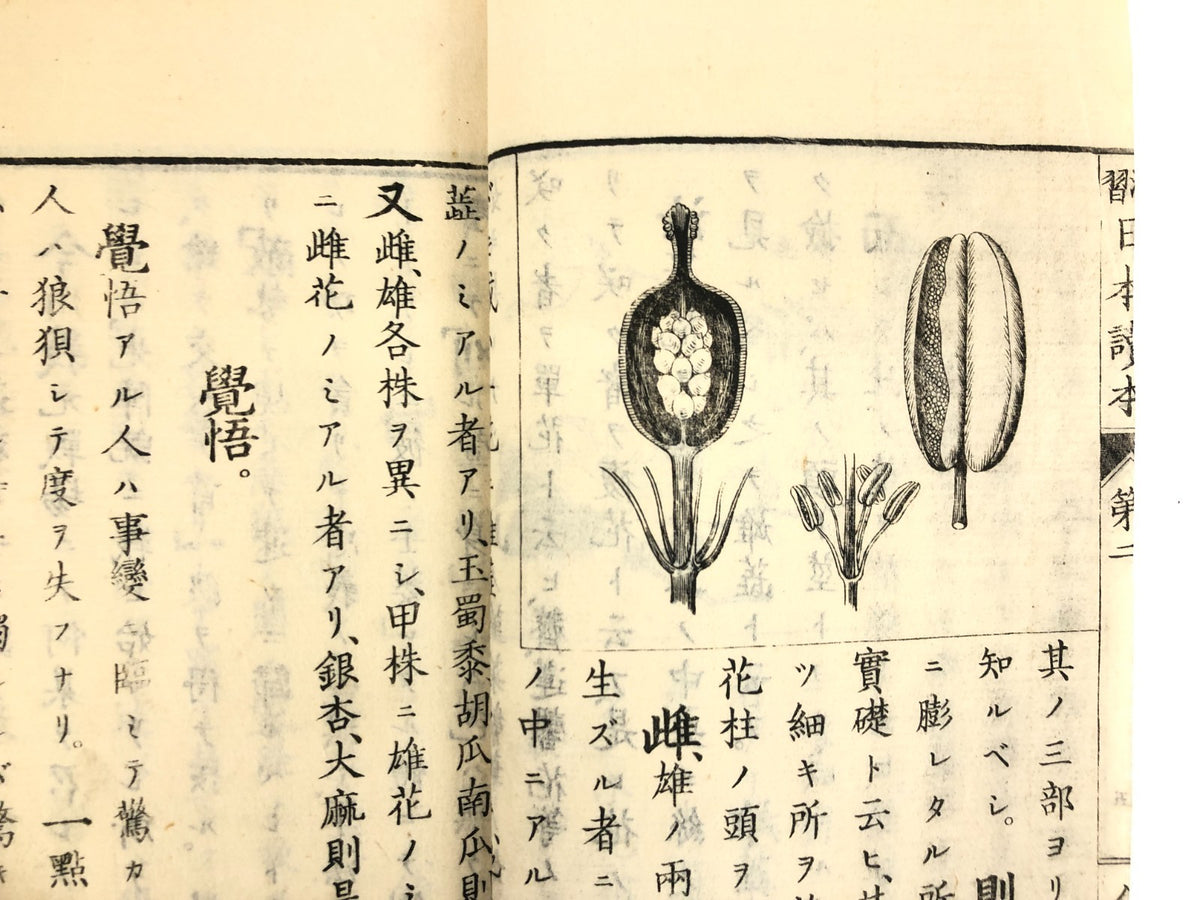 習日本讀本
第二
其ノ三部ヨリ
知ルベシ。則
ニ膨レタル所
實礎ト云ヒ、
ツ細キ所ヲ
花柱ノ頭ヲ
雌、雄ノ兩
生ズル者ニ
ノ中ニアル
蕋ノミアル者アリ、玉蜀黍胡瓜南瓜則
又雌、雄各株ヲ異ニシ、甲株ニ雄花ノミ
ニ雌花ノミアル者アリ、銀杏、大麻則是
覺悟。
覺悟アル人ハ事變ニ臨ミテ驚カ
人ハ狼狽シテ度ヲ失フナリ。一點